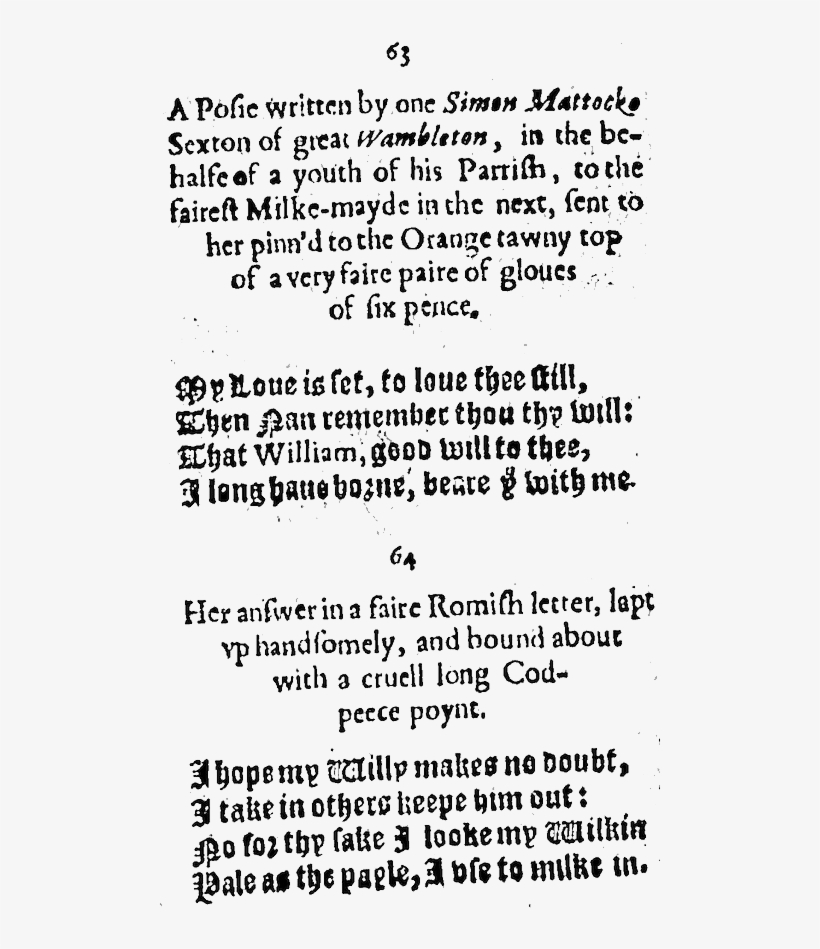 63
A Poſie written by one Simon Mattocke
Sexton of great Wambleton, in the be-
halfe of a youth of his Parriſh, to the
faireſt Milke-mayde in the next, ſent to
her pinn'd to the Orange tawny top
of a very faire paire of gloues
of ſix pence.
My Loue is ſet, to loue thee ſtill,
Then Nan remember thou thy will:
That William, good will to thee,
I long haue borne, beare yͭ with me.
64
Her anſwer in a faire Romiſh letter, lapt
vp handſomely, and bound about
with a cruell long Cod-
peece poynt.
I hope my Willy makes no doubt,
I take in others keepe him out:
No for thy ſake I looke my Wilkin
Pale as the payle, I vſe to milke in.